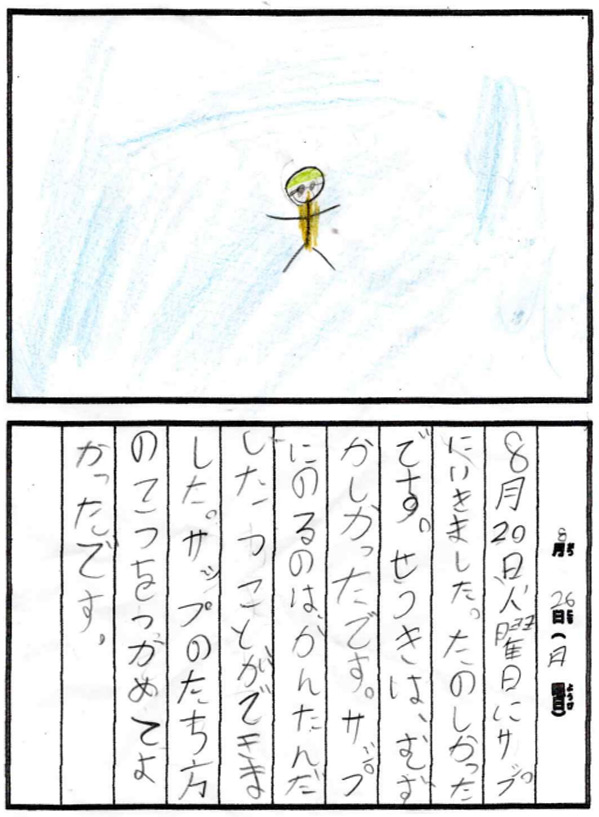 8月26日(月曜日)
8月20日火曜日にサプ
にいきました。たのしかった
です。せつきは、むず
かしかったです。サップ
にのるのは、かんたんだ
した つことができま
した。サップのたち方
のこつをつがめてよ
かったです。